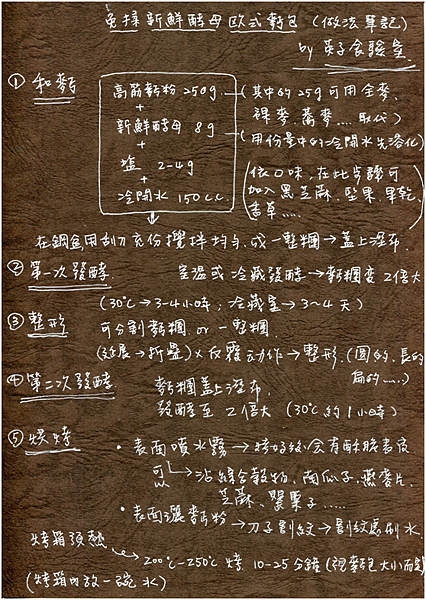 免揉新鮮酵母歐式麵包 (做法筆記)
by 食驗室
① 和麵
高筋麵粉 250g (其中的25g可用全麥、
+ 裸麥、蕎麥....取代)
新鮮酵母 8g (用份量中的冷開水先溶化)
+
塩 2-4g (依口味,在此步驟可
+ 加入黑芝麻、堅果、果乾、
冷開水 150 c.c. 香草.....)
在鋼盆用刮刀充份攪拌均勻,成一整糰→蓋上溼布.
② 第一次發酵. 室温或冷藏發酵→麵糰變2倍大
(30℃→3-4小時;冷藏室→3~4天)
③ 整形 可分割麵糰 or 一整糰.
(延展→折疊)×反覆動作→整形.(圓的、長的
扁的.....)
④ 第二次發酵. 麵糰蓋上溼布.
發酵至2倍大 (30℃約1小時)
⑤ 烘烤 • 表面噴水霧→烤好後會有酥脆表皮
可以 沾綜合穀物、南瓜子、燕麥片、
芝麻、堅果子......
• 表面灑麵粉→刀子割紋→割紋處刷水.
烤箱預熱 200℃-250℃ 烤 10-25分鐘(視麵包大小而定)
(烤箱內放一碗水)